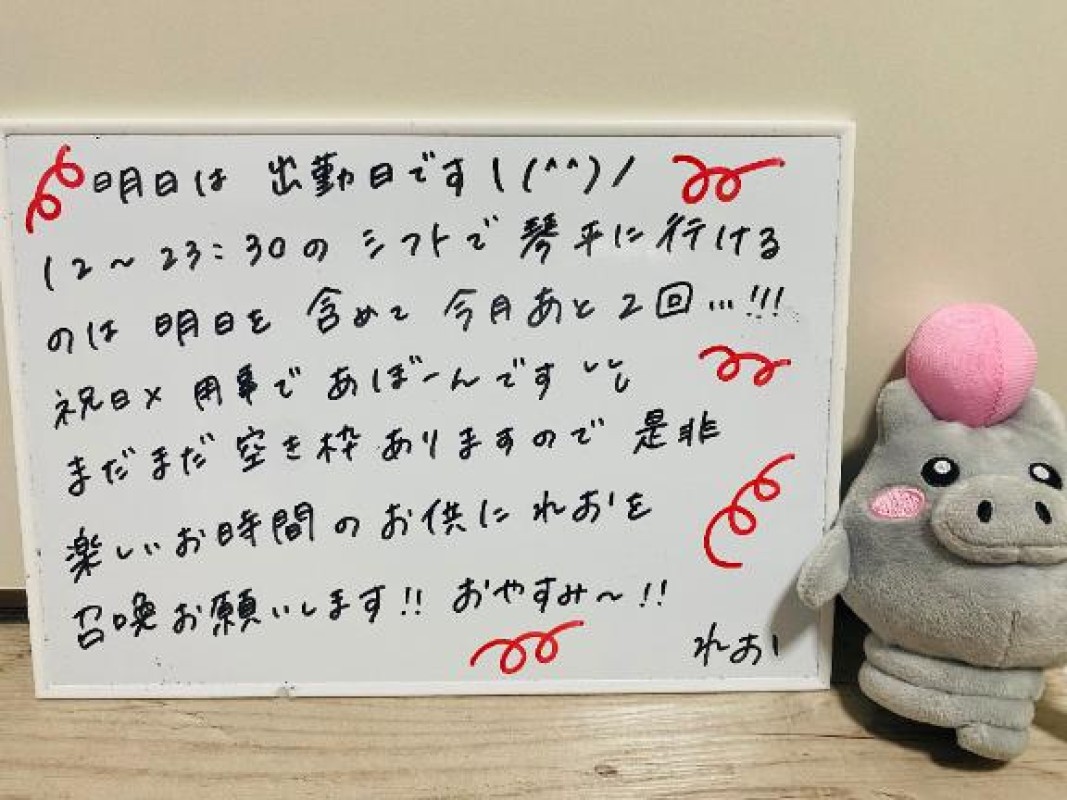 明日は 出勤日です \(^^)/
12~23:30の シフトで 琴平に行ける
のは 明日を 含めて 今月あと2回…!!!
祝日× 用事で あぼーんです
まだまだ 空き枠ありますので 是非
楽しいお時間のお供に れおを
召喚お願いします!! おやすみ~!!
れお